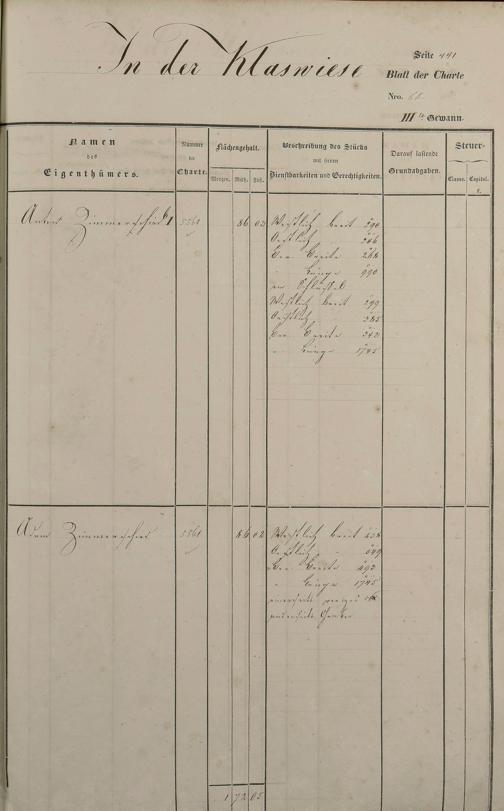 In der Klaswiese
Seite 441
Blatt der Charte
Nro. 68
IIIte Gewann.
Namen
des
Eigenthümers.
Nummer
der
Charte.
Flächengehalt.
Morgen. Ruth. Fuß.
Beschreibung des Stücks
mit seinen
Dienstbarkeiten und Gerechtigkeiten.
Darauf lastende
Grundabgaben.
Steuer-
Classe. Capital.
f.
Anton Zimmerschied 5560 86 03 Westlich breit 290
Oestlich
Breite 268
Länge 990
im Schlüssel
Westlich breit 299
Oestlich 385
Breite 342
Länge 1745
Adam Zimmerschied 5561 86 02 Westlich breit
Oestlich
Breite 493
Länge 1745
1 72 05